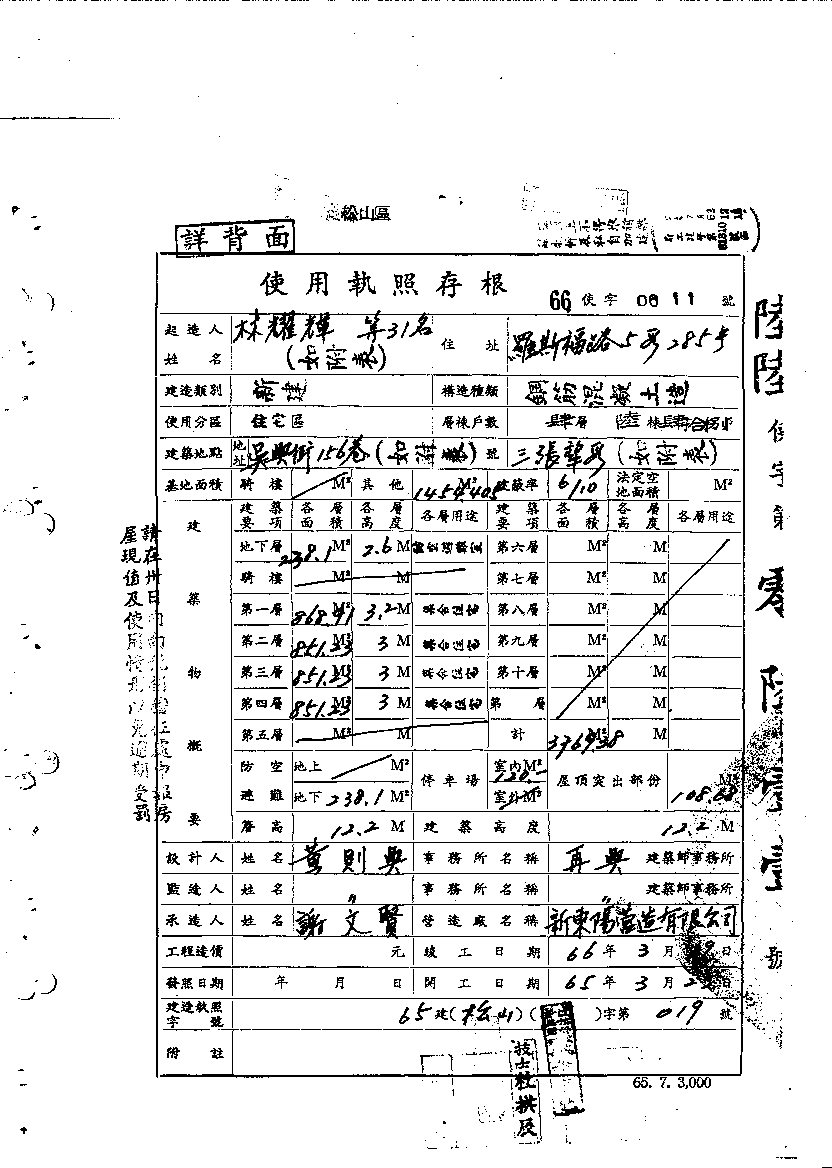 松山區
詳背面
使用執照存根
66 使字 0611 號
起造人姓名 林耀輝 等31名 (如附表) 住址 羅斯福路5段285号
建造類別 新建 構造種類 鋼筋混凝土造
使用分區 住宅區 層棟戶數 肆層 陸棟
建築地點 地址 吳興街156巷(如附表)號 三張犂段(如附表)
基地面積 騎樓 M² 其他 1454.405 M² 建蔽率 61.0 法定空地面積 M²
建築物概要
建築要項 各層面積 各層高度 各層用途 建築要項 各層面積 各層高度 各層用途
地下層 238.1 M² 2.6 M 第六層 M² M
騎樓 M² M 第七層 M² M
第一層 868.41 M² 3.2 M 集合住宅 第八層 M² M
第二層 851.23 M² 3 M 集合住宅 第九層 M² M
第三層 851.23 M² 3 M 集合住宅 第十層 M² M
第四層 851.23 M² 3 M 集合住宅 第 層 M² M
第五層 M² M 計 M² M
防空避難 地上 M² 停車場 室內M² 120.- 屋頂突出部份 108.68 M²
地下 238.1 M² 室外M²
簷高 12.2 M 建築高度 12.2 M
設計人 姓名 黃則興 事務所名稱 再興 建築師事務所
監造人 姓名 〃 事務所名稱 〃 建築師事務所
承造人 姓名 謝文賢 營造廠名稱 新東陽營造有限公司
工程造價 元 竣工日期 66年3月 日
發照日期 年 月 日 開工日期 65年3月 日
建造執照字號 65建(松山)( )字第 019 號
附註
65. 7. 3,000
技士杜拱辰
請在卅日內
屋現值及使用情形以免逾期受罰
陸陸使字第零陸壹壹號